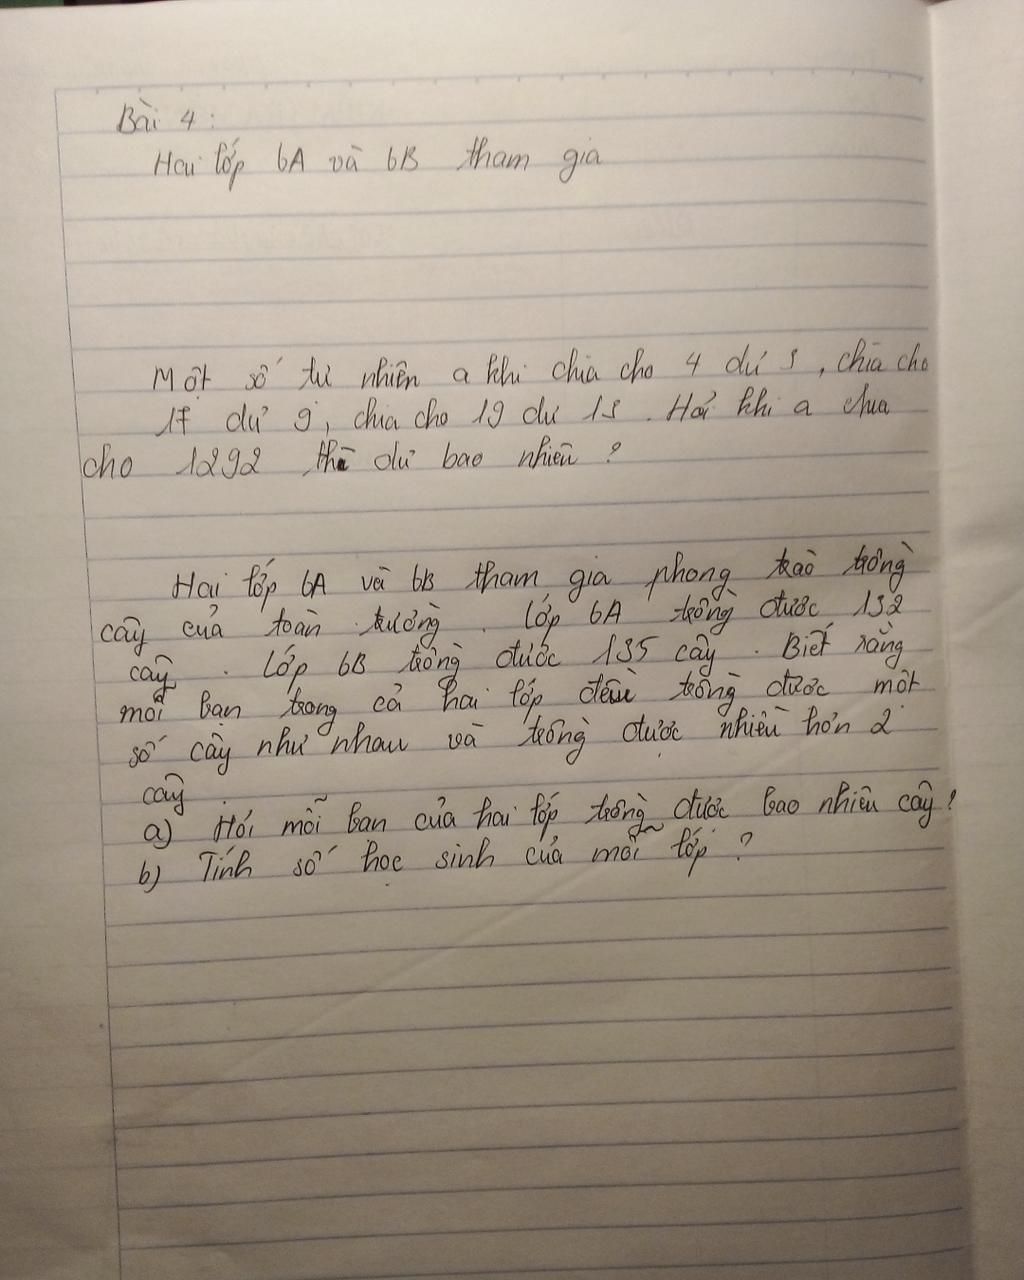 Bài 4 :
Hai lớp 6A và 6B tham gia
Một số tự nhiên a khi chia cho 4 dư 3 , chia cho
17 dư 9 , chia cho 19 dư 13 . Hỏi khi a chia
cho 1292 thì dư bao nhiêu ?
Hai lớp 6A và 6B tham gia phong trào trồng
cây của toàn trường . Lớp 6A trồng được 132
cây . Lớp 6B trồng được 135 cây . Biết rằng
mỗi bạn trong cả hai lớp đều trồng được một
số cây như nhau và trồng được nhiều hơn 2
cây .
a) Hỏi mỗi bạn của hai lớp trồng được bao nhiêu cây ?
b) Tính số học sinh của mỗi lớp ?